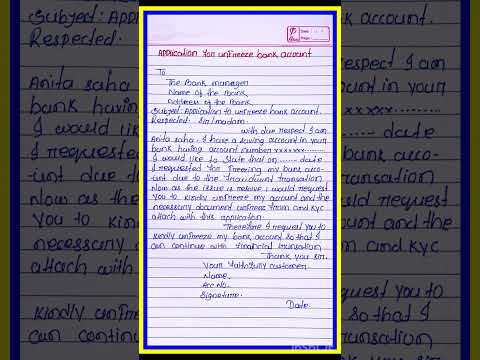 Application for unfreeze bank account
To
The Bank manager
Name of the Bank
Address of the Bank
Subject: Application to unfreeze bank account.
Respected Sir/madam.
with due respect I am
Anita saha. I have a saving account in your
bank having account number xxxxxx........
I would like to state that on ....... date
I requested for freezing my bank acc-
ount due to the fraudulent transation
Now as the issue is resolve I would request
you to kindly unfreeze my account and the
necessary document unfreez from and kyc
attach with this application.
Therefore I request you to
kindly unfreeze my bank account so that I
can continue with financial transation
Thank you sir.
Your faithfully customer
Name.
Acc No.
Signature.
Date